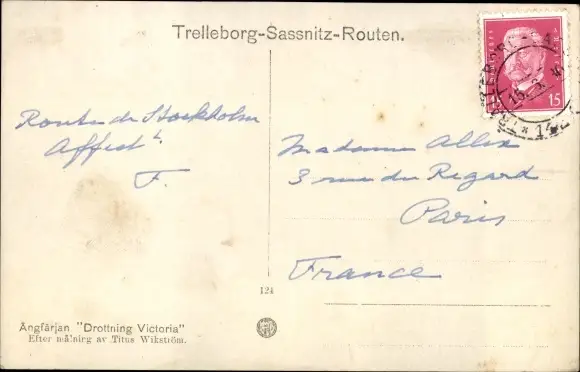 Trelleborg-Sassnitz-Routen.
15
Route de Stockholm
Affect.
F.
Madame Allix
3 rue du Regard
Paris
France
124
Ångfärjan "Drottning Victoria"
Efter målning av Titus Wikström.